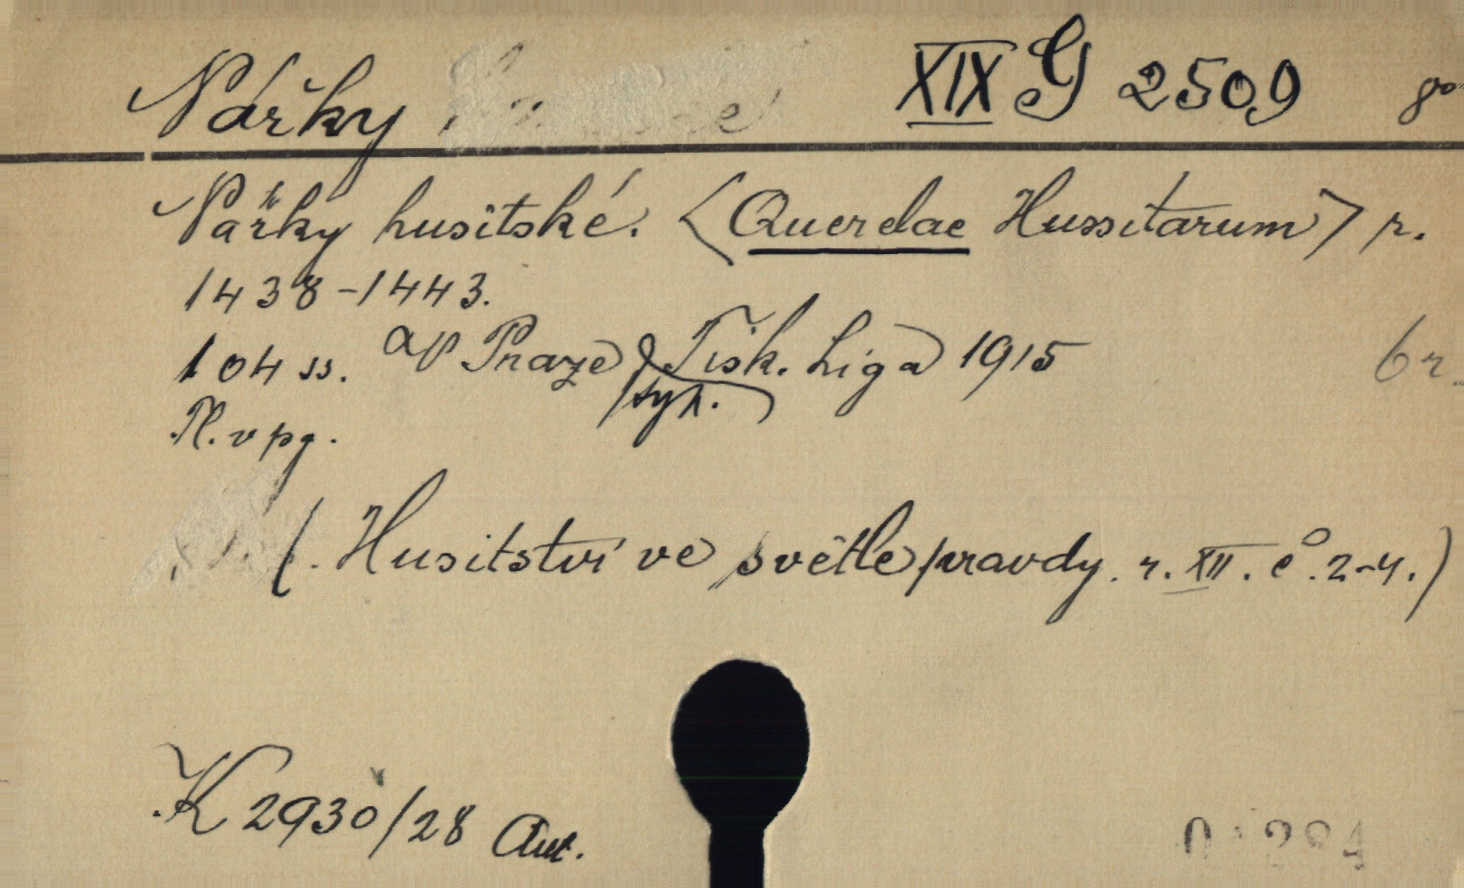 Nářky XIX G 2509 8o
Nářky husitské. <Querelae Hussitarum> r.
1438-1443.
104 ss. V Praze Tisk. Liga 1915 6 r.
typ.
Pl. v pg.
(. Husitství ve světle pravdy. r. XII. č. 2-4.)
K 2930/28 Aut.